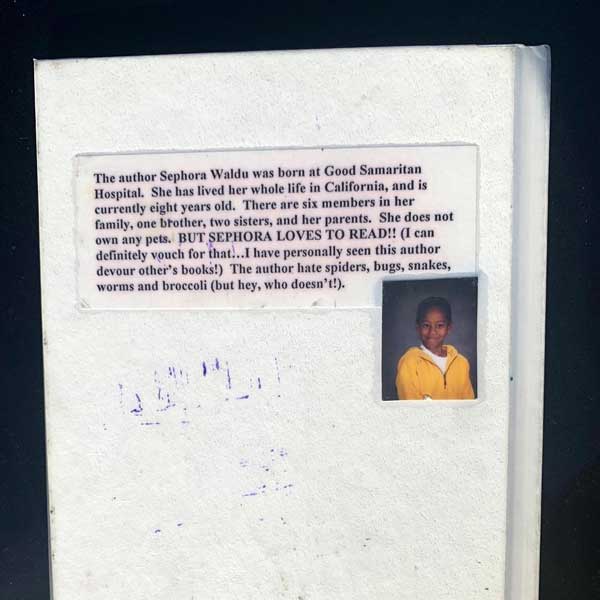 The author Sephora Waldu was born at Good Samaritan
Hospital. She has lived her whole life in California, and is
currently eight years old. There are six members in her
family, one brother, two sisters, and her parents. She does not
own any pets. BUT SEPHORA LOVES TO READ!! (I can
definitely vouch for that...I have personally seen this author
devour other's books!) The author hate spiders, bugs, snakes,
worms and broccoli (but hey, who doesn't!).